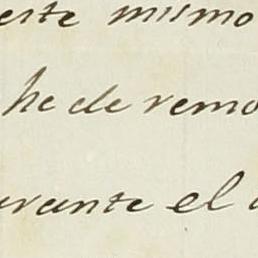 este mismo
he de remo
urante el